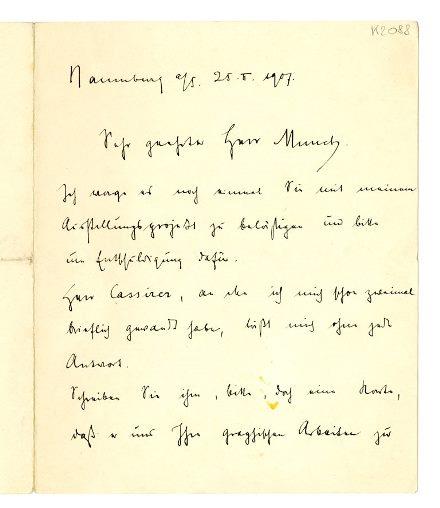 K2088
Naumburg a/S. 28.5.1907.
Sehr geehrter Herr Munch.
Ich wage es noch einmal Sie mit meinem
Ausstellungsprojekt zu belästigen und bitte
um Entschuldigung dafür.
Herr Cassirer, an den ich mich schon zweimal
brieflich gewandt habe, läßt mich ohne jede
Antwort.
Schreiben Sie ihm, bitte, doch eine Karte,
daß er uns Ihre graphischen Arbeiten zu